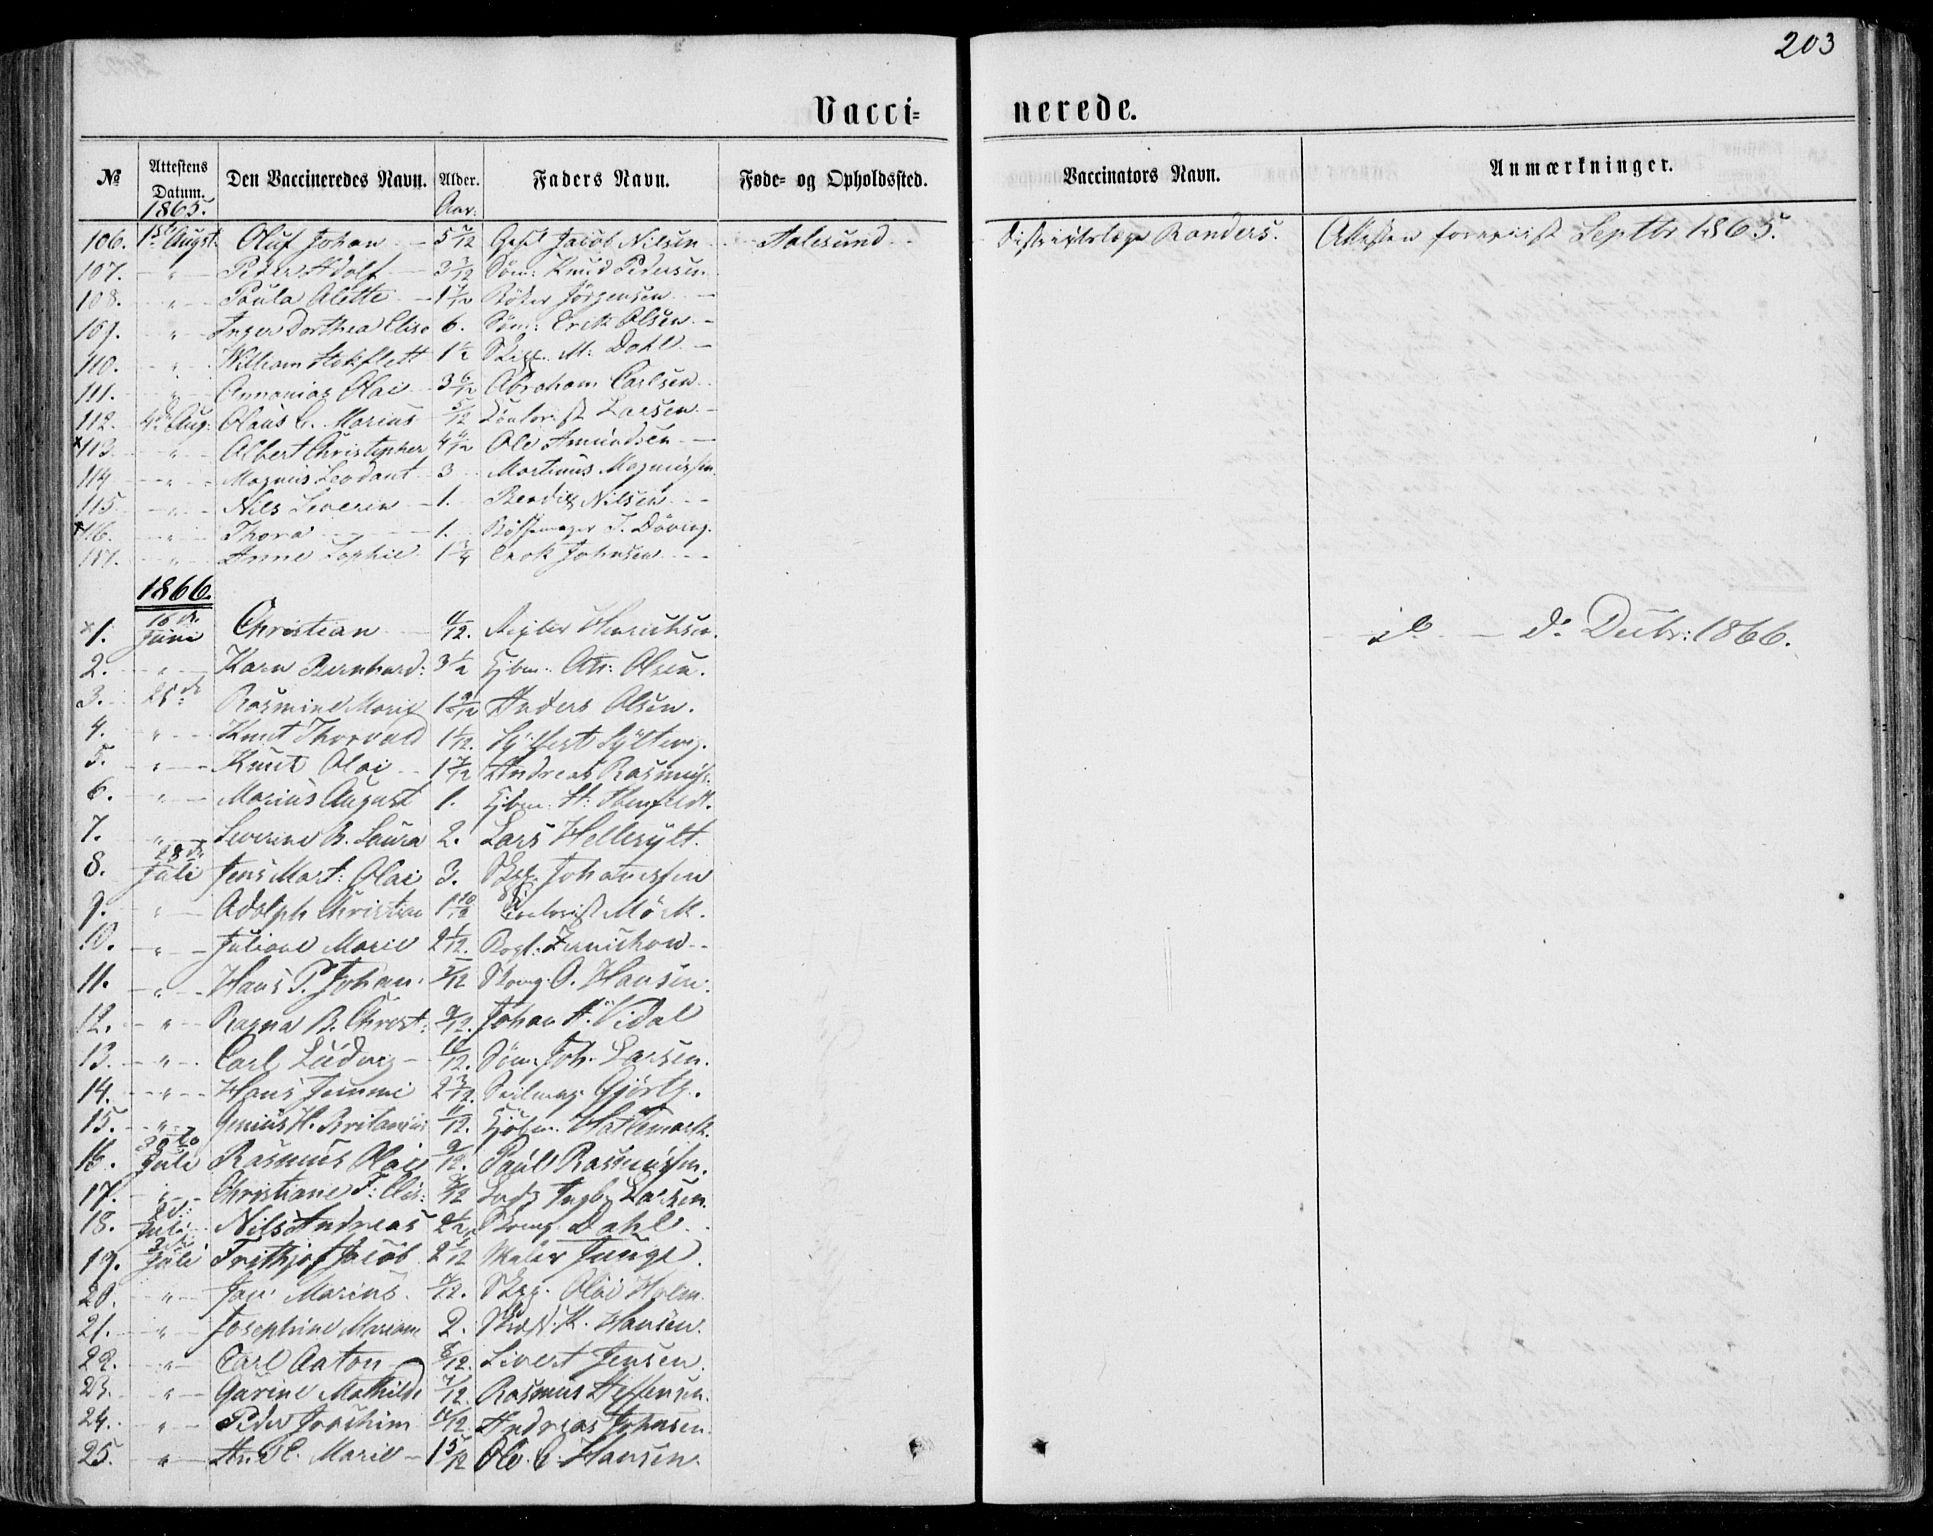 203
Vacci= nerede.
№ Attestens Datum. Den Vaccineredes Navn. Alder. Faders Navn. Føde= og Opholdssted. Vaccinators Navn. Anmærkninger.
1865. Aar.
106. 1ste Augst Oluf Johan 5 Jacob Nilsen Aalesund Distriktslæge Randers. Attesten forevist Septbr 1865.
107. " Peder Adolf 3 3/12 Søm: Knud Pedersen
108. " Paula Alette 1 Bøker Jörgensen
109. " Inger Dorthea Elise 6. Søm: Erik Olsen
110. " William Stokflett 1 1/2 M. Dahl
111. " Annanias Olai 3 6/12 Abraham Carlsen
112. 4de Aug: Olaus C. Marius 5/12 Contorist Larsen
x113. " Albert Christopher 4 Ole Amundsen
114 " Magnus Leodant 3 Martinus Magnussen
115 " Nils Severin 1. Bendix Nilsen
x116. " Thora 1. Bössemager J. Döving.
117. " Anne Sophie 1 3/4 Erik Johnsen
1866.
x1. 16de Juni Christian /12. Henrichsen. do Decbr: 1866.
2. " Karn Bernhard: 3 1/2 Gjbm: Olsen.
3. 25de Rasmine Marie 1 9/12 Anders Olsen.
4. " Knut Thorvald 1 /12. Sylfest Sylteviig.
5. " Knut Olai 1 7/12 Andreas Rasmuss.
6. " Marius August 1. Gjbm. H.
7. " Severine B. Laura 2. Lars Hellesylt.
8. 28de Juli Jens Mart: Olai 3. Skpp. Johannessen
9. " Adolph Christian 1 10/12 Contorist Mörk.
10. " Juliane Marie 2 1/12.
11. " Hans P. Johan. /12 Skomg. O. Hansen.
12. " Ragna B. Christ: 9/12. Johan H. Vidal
13. " Carl Ludvig 10/12. Søm: Joh. Larsen.
14. " Hans Jemmi 2 3/12. Seilmag. Gjörtz.
15. " H. Britanius 11/12. Gjøbm. Hattemark.
16. 30te Juli Rasmus Olai 9/12. Paul Rasmussen.
17. " Christiane F: Elis: 8/12 Lods Ingb. Larsen.
18. Juli Nils Andreas 2 Skomg. Dahl
19. Juli Frithjof Jacob 2 /12 Maler Junge.
20. " Marius. /12. Skpp. Olai Holm.
21. " Josephine Mariane 2. K. Hansen.
22. " Carl Anton 8/12. Sivert Jensen.
23. " Garine Mathilde 7/12. Rasmus Steffensen.
24. " Peder Joachim /12 Andreas Johnsen.
25. " Marie 1 5/12 Ole C. Hansen.